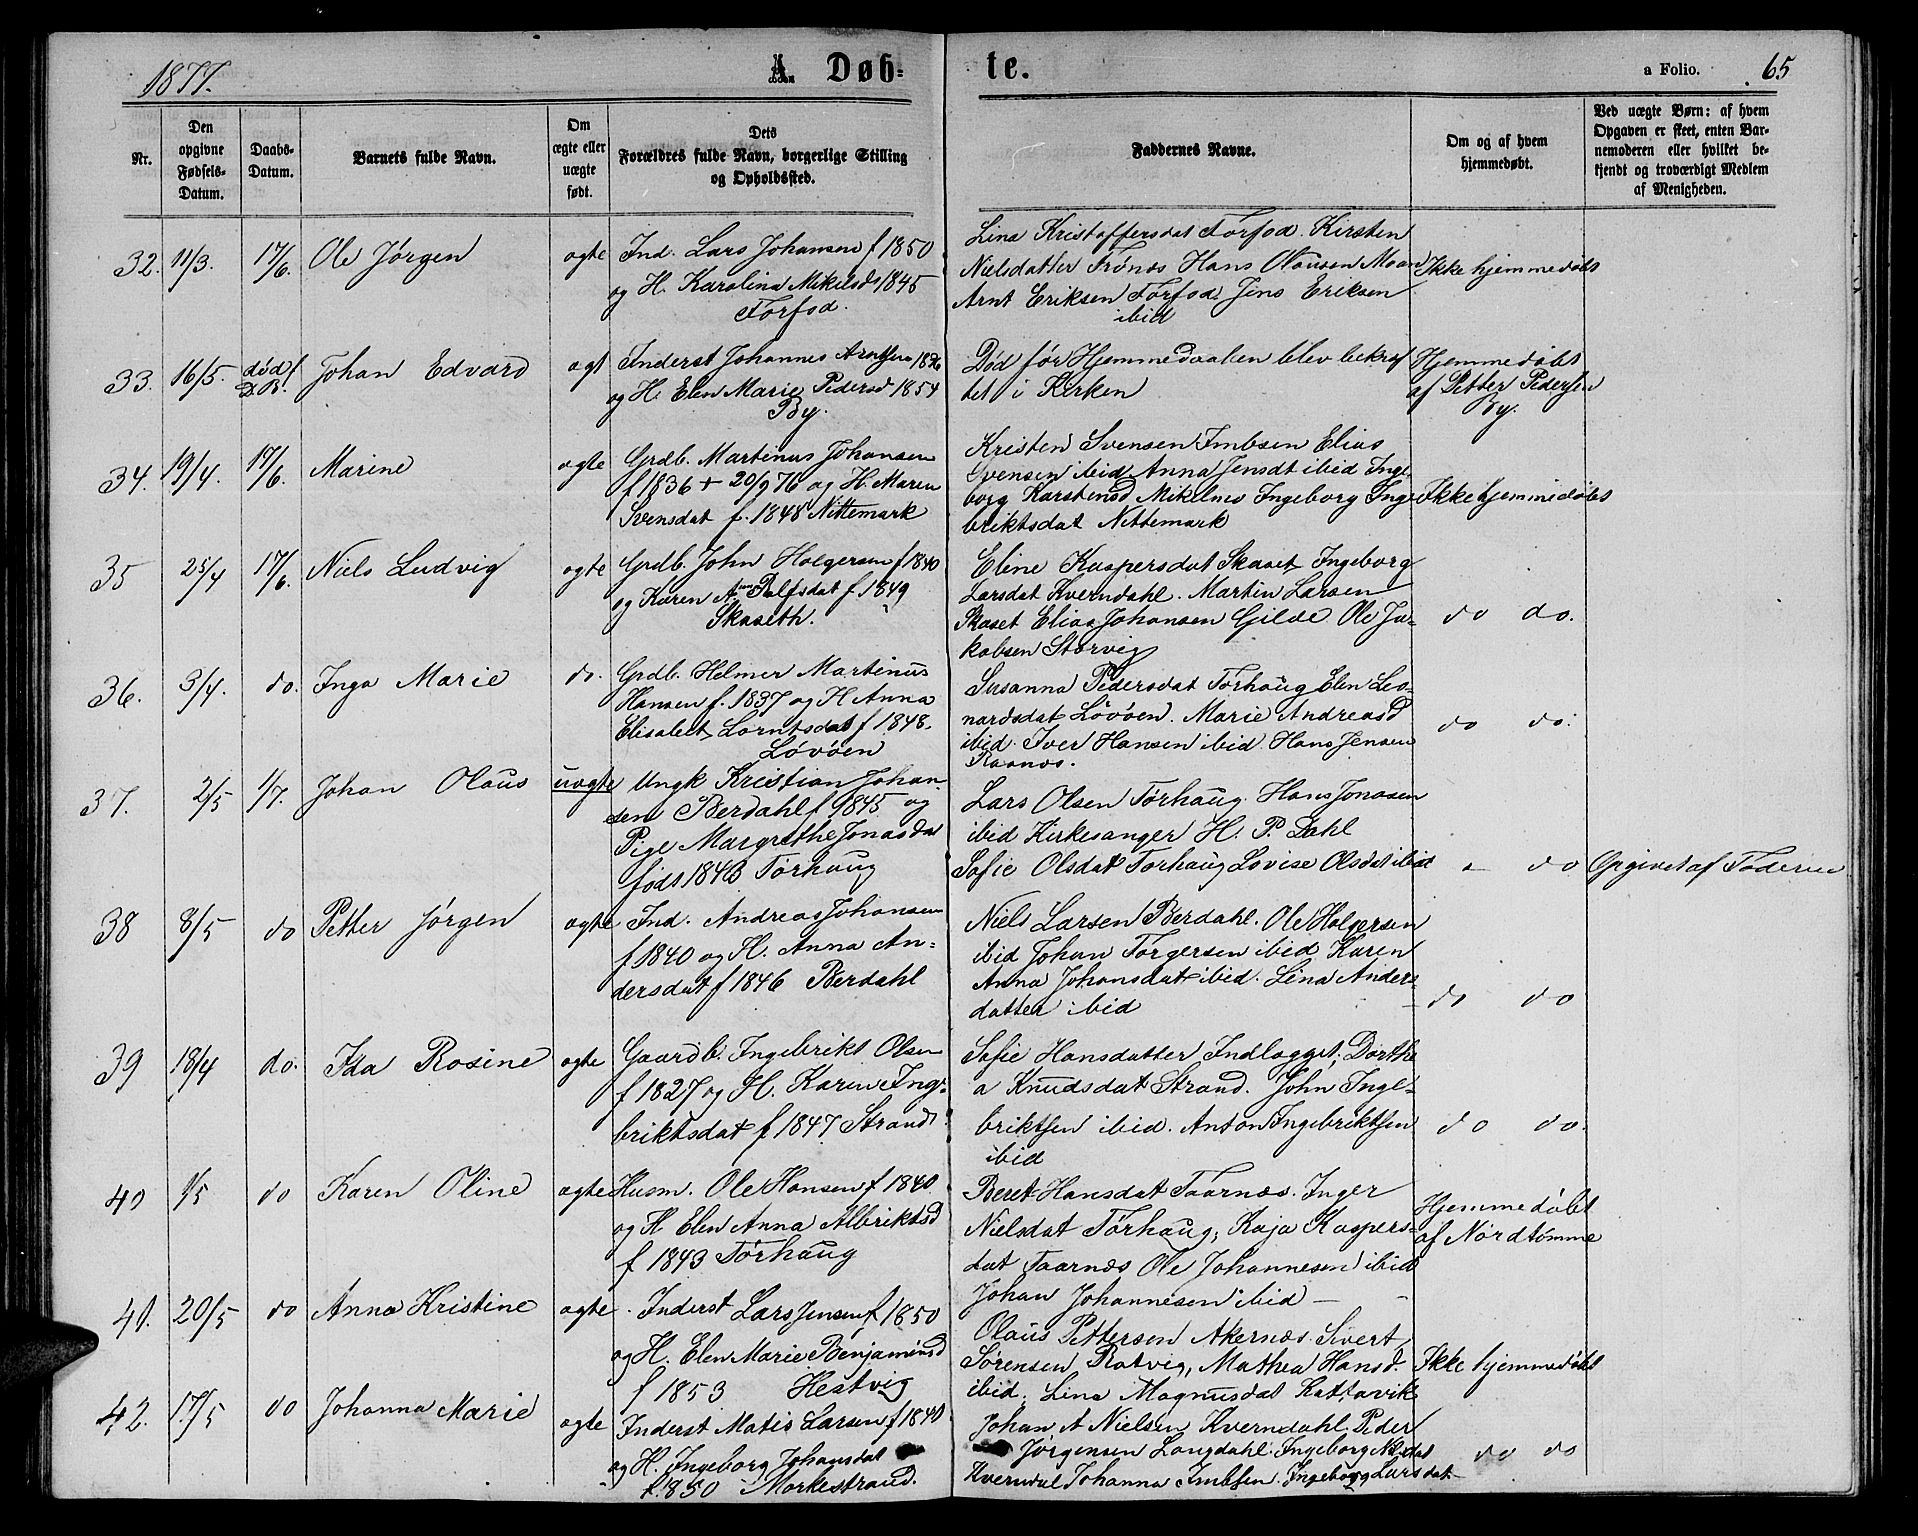 1877.
A. Døb-
te.
a Folio.
65
Nr.
Den
opgivne
Fødsels-
Datum.
Daabs-
Datum.
Barnets fulde Navn.
Om
ægte eller
uægte
født.
Dets
Forældres fulde Navn, borgerlige Stilling
og Opholdssted.
Faddernes Navne.
Om og af hvem
hjemmedøbt.
Ved uægte Børn: af hvem
Opgaven er skeet, enten Bar-
nemoderen eller hvilket be-
kjendt og troværdigt Medlem
af Menigheden.
32. 11/3. 17/6. Ole Jørgen ægte
Ind. Lars Johansen f 1850
og H. Karolina Mikelsd 1845
Forfod.
Lina Kristoffersdat Forfod. Kirsten
Nielsdatter Frønes Hans Olausen Moan
Arnt Eriksen Forfod. Jens Eriksen
ibid
Ikke hjemmedøbt
33. 16/5. død f. D.B. Johan Edvard ægt
Inderst Johannes Arntsen 1826
og H. Elen Marie Pedersd 1854
By.
Død før Hjemmedaaben blev bekræf
tet i Kirken
Hjemmedøbt
af Petter Pedersen
By.
34. 19/4. 17/6. Marine ægte
Grdb. Martinus Johansen
f 1836 + 20/9 76 og H. Maren
Svensdat f. 1848 Nittemark
Kristen Svensen Imbsen Elias
Svensen ibid Anna Jensdt ibid Inge
borg Karstensd Mikelnes Ingeborg Inge
briktsdat Nittemark
Ikke hjemmedøbt
35 25/4 17/6. Niels Ludvig ægte
Grdb. John Holgersen f 1840
og Karen Anna Rolfsdat f 1849
Skaseth.
Eline Kaspersdat Skaset Ingeborg
Larsdat Kverndahl. Martin Larsen
Skaset Elias Johansen Gilde Ole Ja-
kobsen Storvig
do do.
36. 3/4. do. Inga Marie do.
Grdb. Helmer Martinus
Hansen f. 1837 og H Anna
Elisabet Lorntsdat f 1848.
Løvøen
Susanna Pedersdat Tørhaug Elen Leo-
nardsdat Løvøen. Marie Andreasd
ibid. Iver Hansen ibid. Hans Jensen
Raanes.
do do.
37. 2/5 1/7. Johan Olaus uægte
Ungk Kristian Johan
sen Berdahl f 1845 og
Pige Margrethe Jonasdat
født 1843 Tørhaug
Lars Olsen Tørhaug. Hans Jonasen
ibid Kirkesanger H. P. Dahl
Sofie Olsdat Tørhaug Lovise Olsdat ibid
- do
Opgivet af Faderen
38 8/5 do Petter Jørgen ægte
Ind. Andreas Johansen
f 1840 og H. Anna An-
dersdat f 1846 Berdahl
Niels Larsen Berdahl. Ole Holgersen
ibid Johan Torgersen ibid Karen
Anna Johansdat ibid. Lina Anders-
datter ibid
do do
39 18/4 do. Ida Rosine ægte
Gaardb. Ingebrikt Olsen
f 1827 og H. Karen Inge-
briktsdat f 1847 Strand
Sofie Hansdatter Indlogget; Dorthe
a Knudsdat Strand. John Inge-
briktsen ibid. Anton Ingebriktsen
ibid
do do.
40 1/5 do Karen Oline ægte
Husm. Ole Hansen f 1840
og H Elen Anna Albriktsd
f 1843 Tørhaug
Beret Hansdat Taarnes. Inger
Nielsdat Tørhaug; Kaja Kaspers-
dat Taarnes Ole Johannesen ibid
Johan Johannesen ibid
Hjemmedøbt
af Nordtømme
41. 20/5 do Anna Kristine ægte
Inderst Lars Jensen f 1850
og H. Elen Marie Benjaminsd
f 1853 Hestvig
Olaus Pettersen Akernes. Sivert
Sørensen Rotvig, Mathea Hansd.
ibid, Lina Magnusdat Kattavik
Ikke hjemmedøbt
42. 17/5 do Johanna Marie ægte
Inderst Matis Larsen f 1840
og H. Ingeborg Johansdat
f. 1850 Morkestrand.
Johan A Nielsen Kverndahl. Peder
Jørgensen Langdahl. Ingeborg Nilsdat
Kverndal Johanna Imbsen. Ingeborg Larsdat
do do